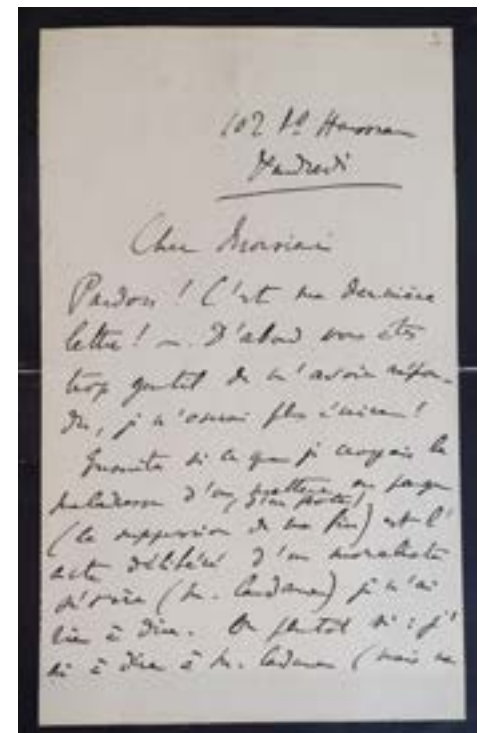 102 Bd Haussman
Vendredi
Cher Monsieur
Pardon ! C'est ma dernière
lettre ! — D'abord vous êtes
trop gentil de m'avoir répon-
du, je n'osais plus écrire !
Ensuite si ce que je croyais la
maladresse d'un metteur en pages
(la suppression de ma fin) est l'
acte délibéré d'un moraliste
(M. ) je n'ai
rien à dire. Ou plutôt si : j'
ai à dire à M. (mais ne